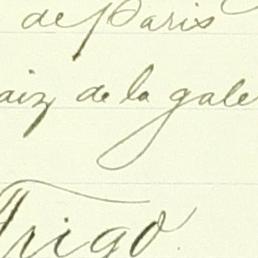 de Paris
aiz de la gale
Trigo